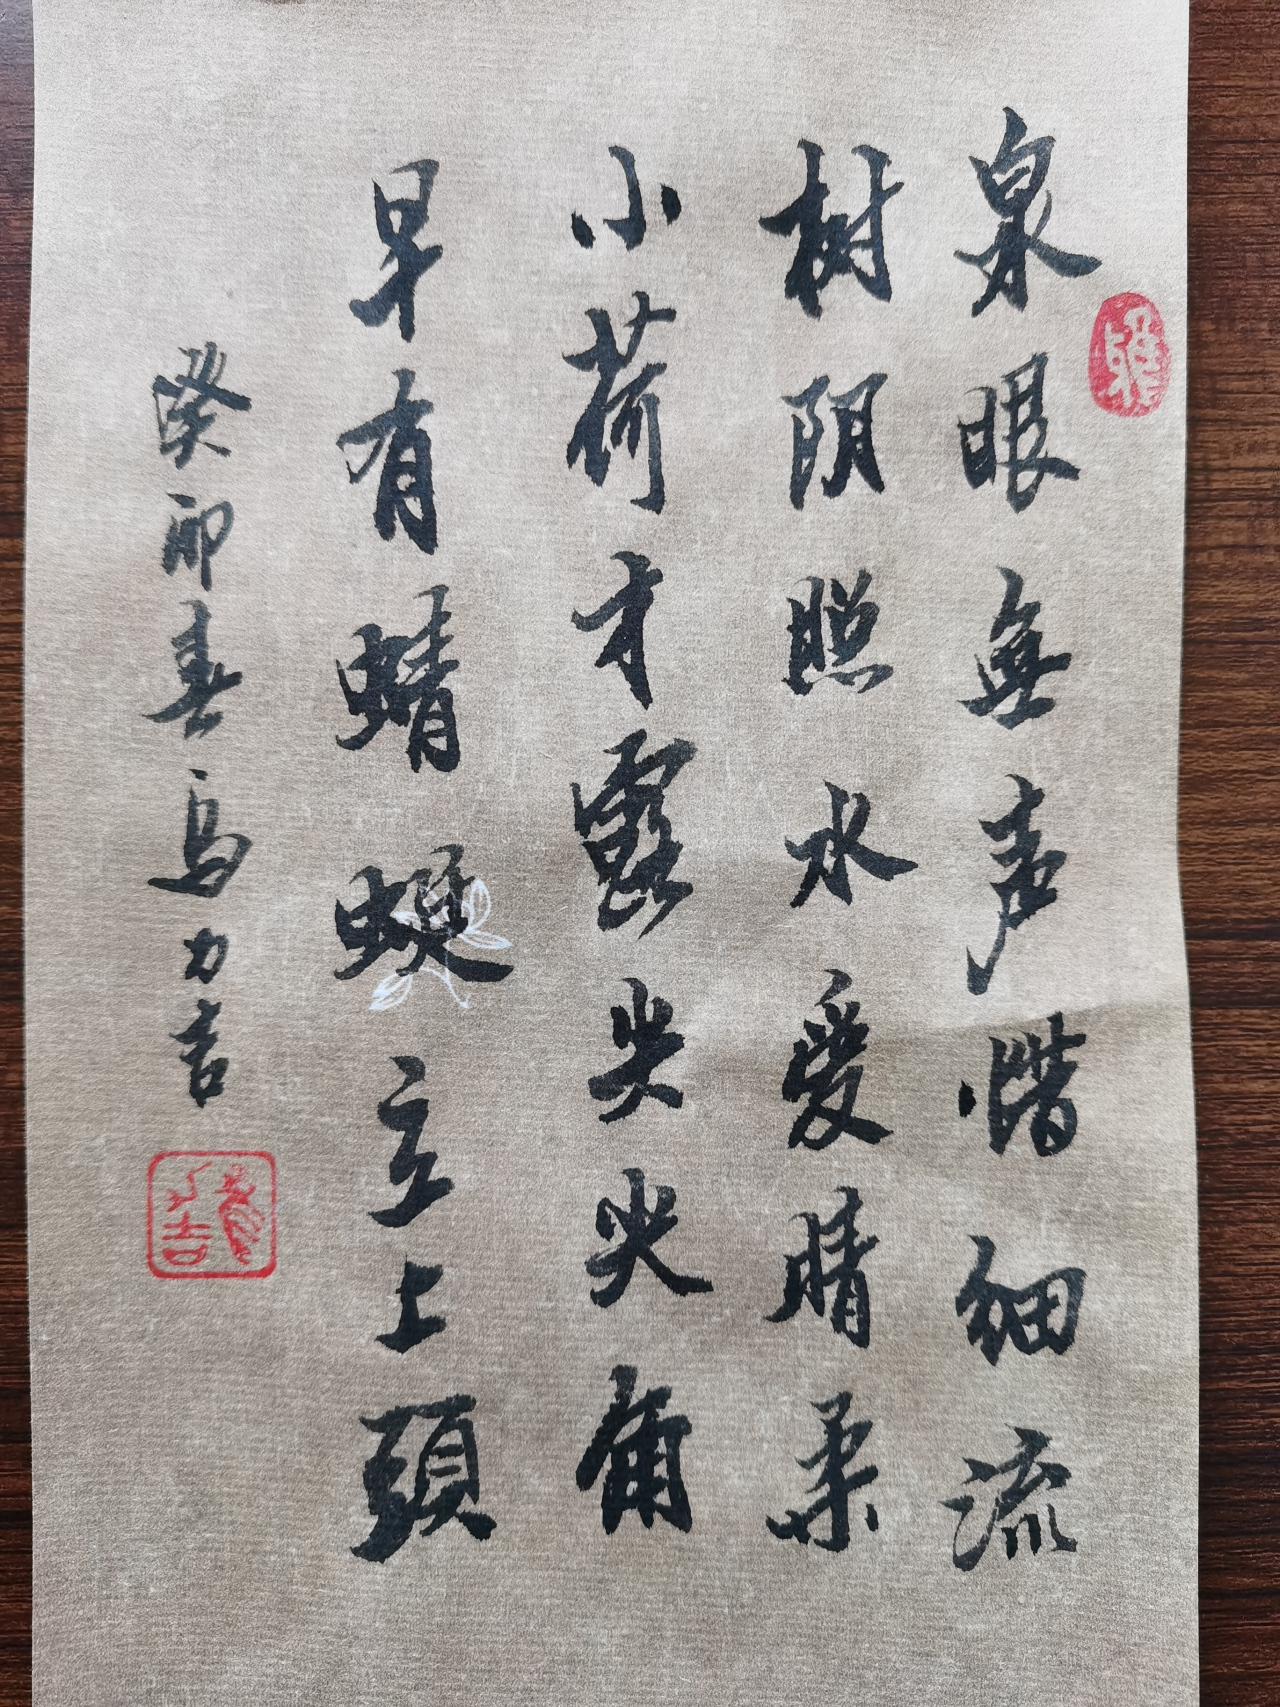 泉眼無声惜细流
树阴照水爱晴柔
小荷才露尖尖角
早有蜻蜓立上頭
癸卯春马力吉